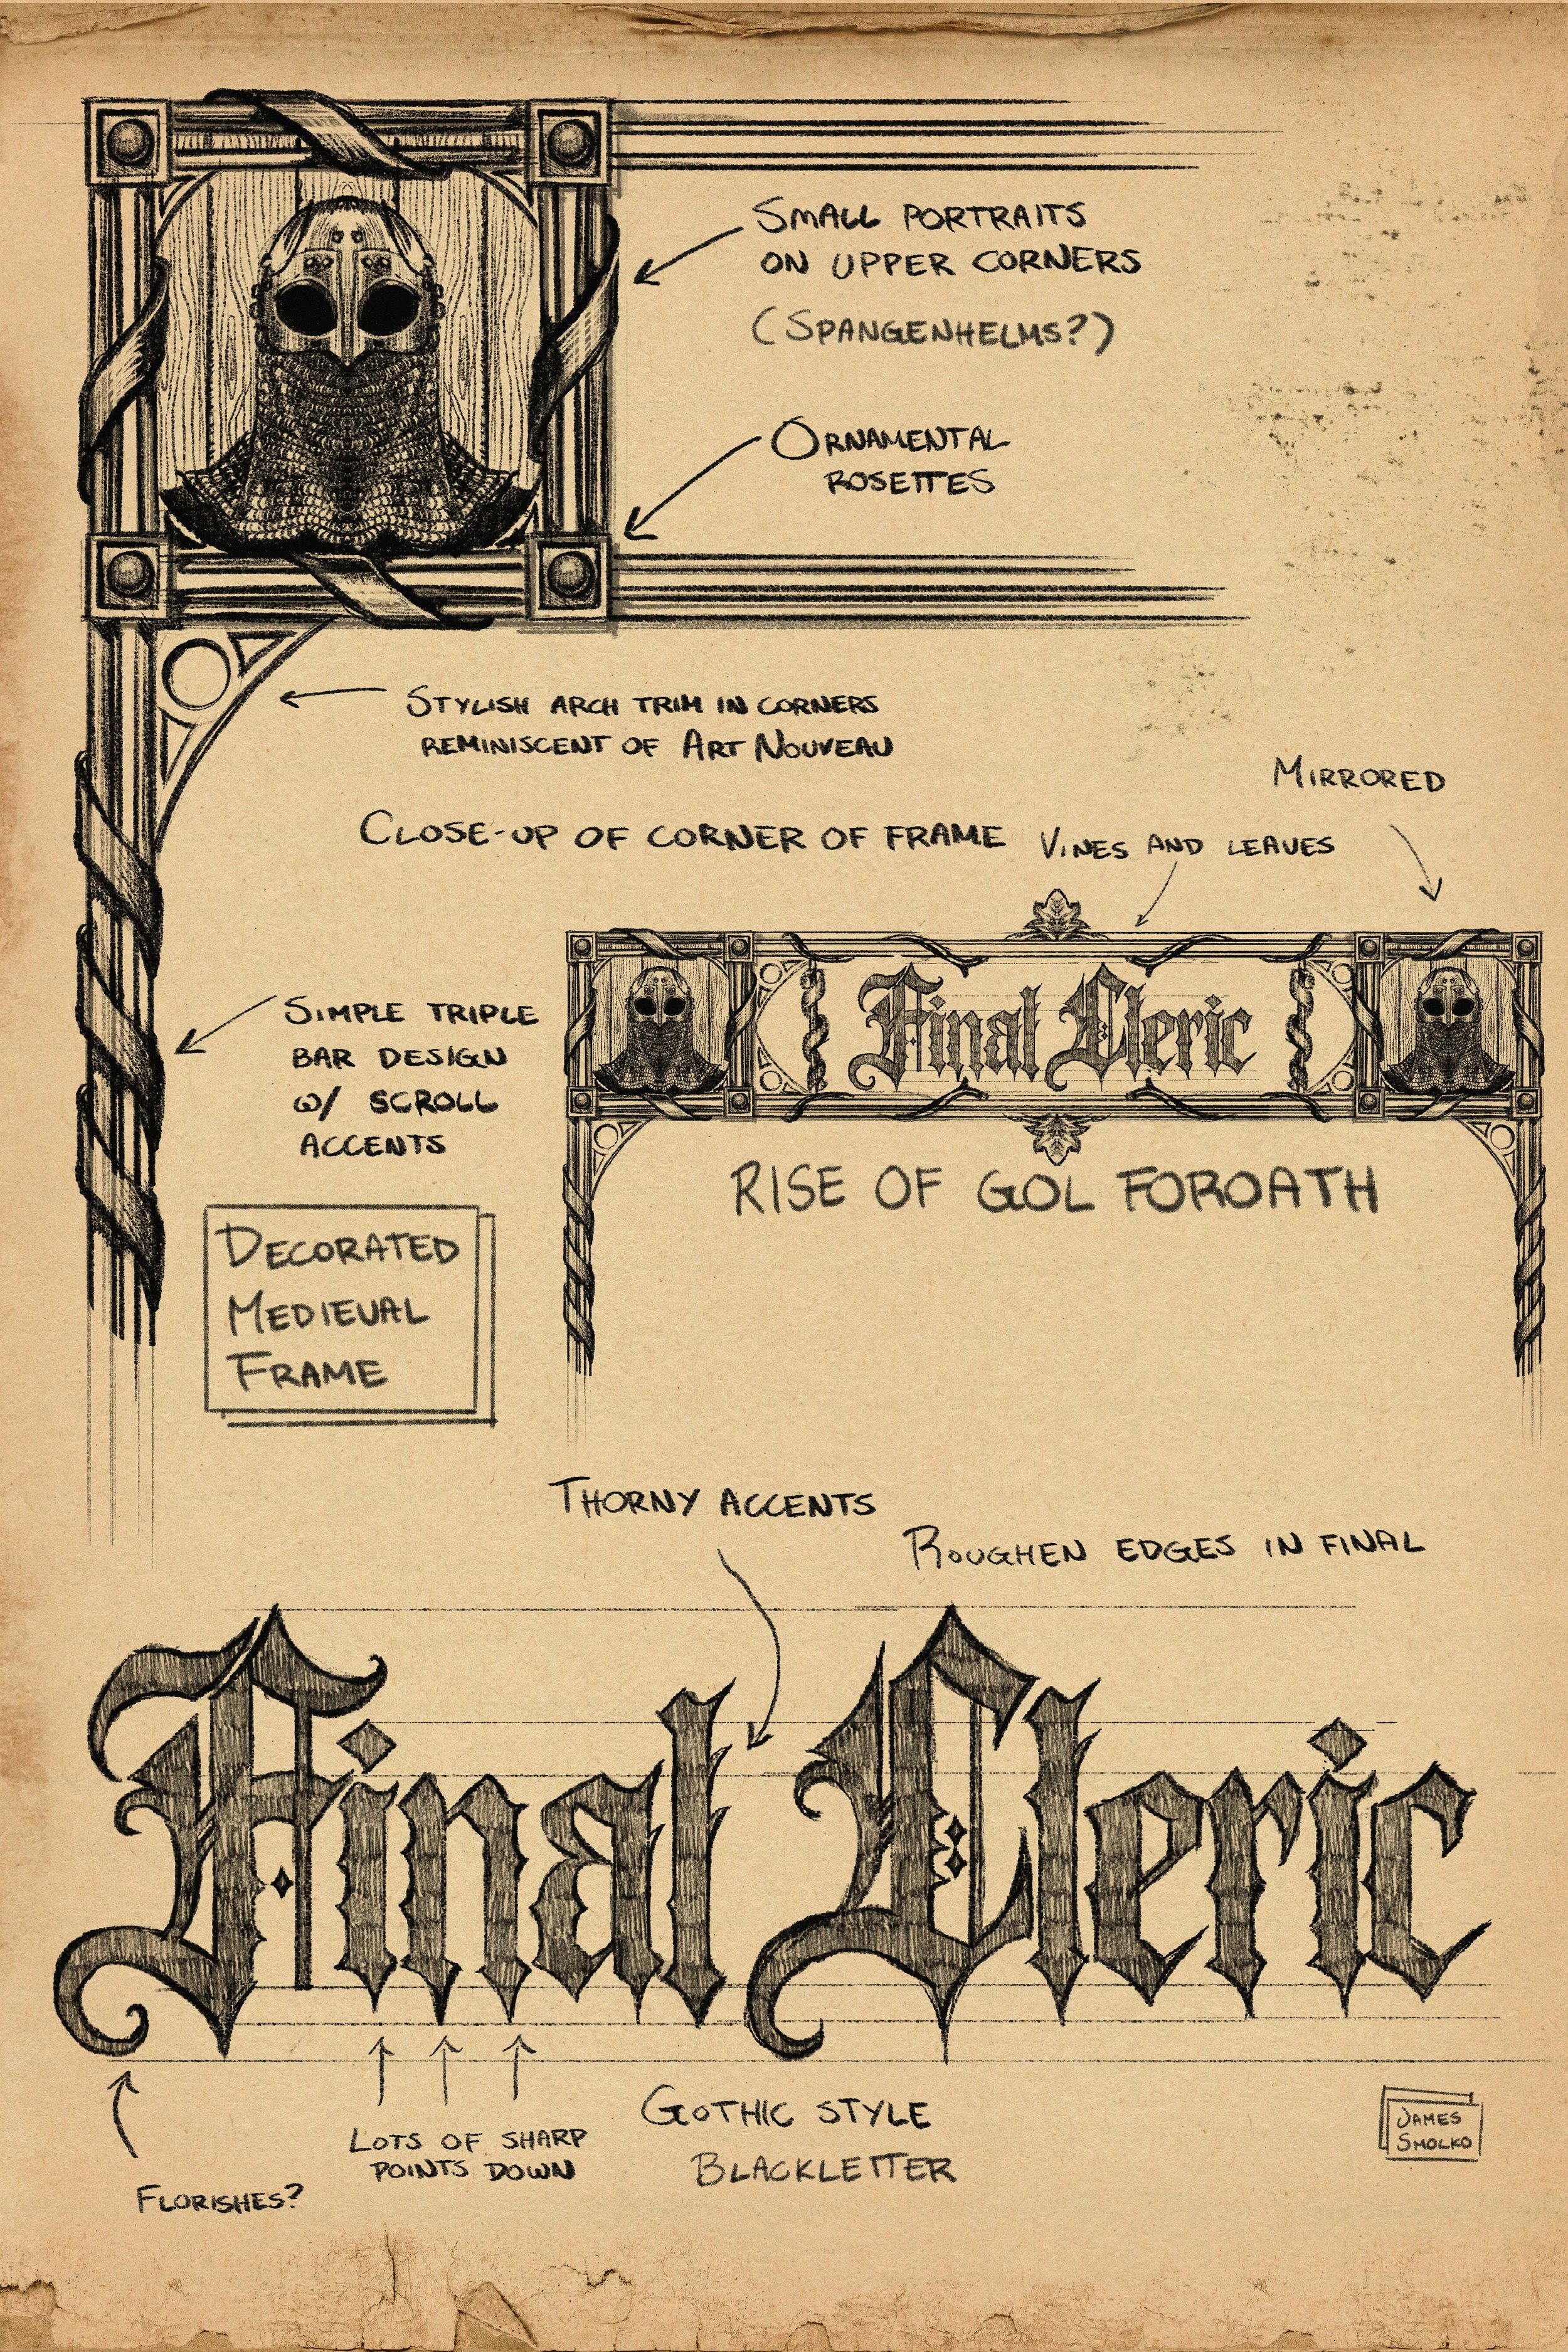 SMALL PORTRAITS
ON UPPER CORNERS
(SPANGENHELMS?)
ORNAMENTAL
ROSETTES
STYLISH ARCH TRIM IN CORNERS
REMINISCENT OF ART NOUVEAU
CLOSE-UP OF CORNER OF FRAME
MIRRORED
VINES AND LEAVES
Final Cleric
RISE OF GOL FOROATH
SIMPLE TRIPLE
BAR DESIGN
W/ SCROLL
ACCENTS
DECORATED
MEDIEVAL
FRAME
THORNY ACCENTS
ROUGHEN EDGES IN FINAL
Final Cleric
FLORISHES?
LOTS OF SHARP
POINTS DOWN
GOTHIC STYLE
BLACKLETTER
JAMES
SMOLKO